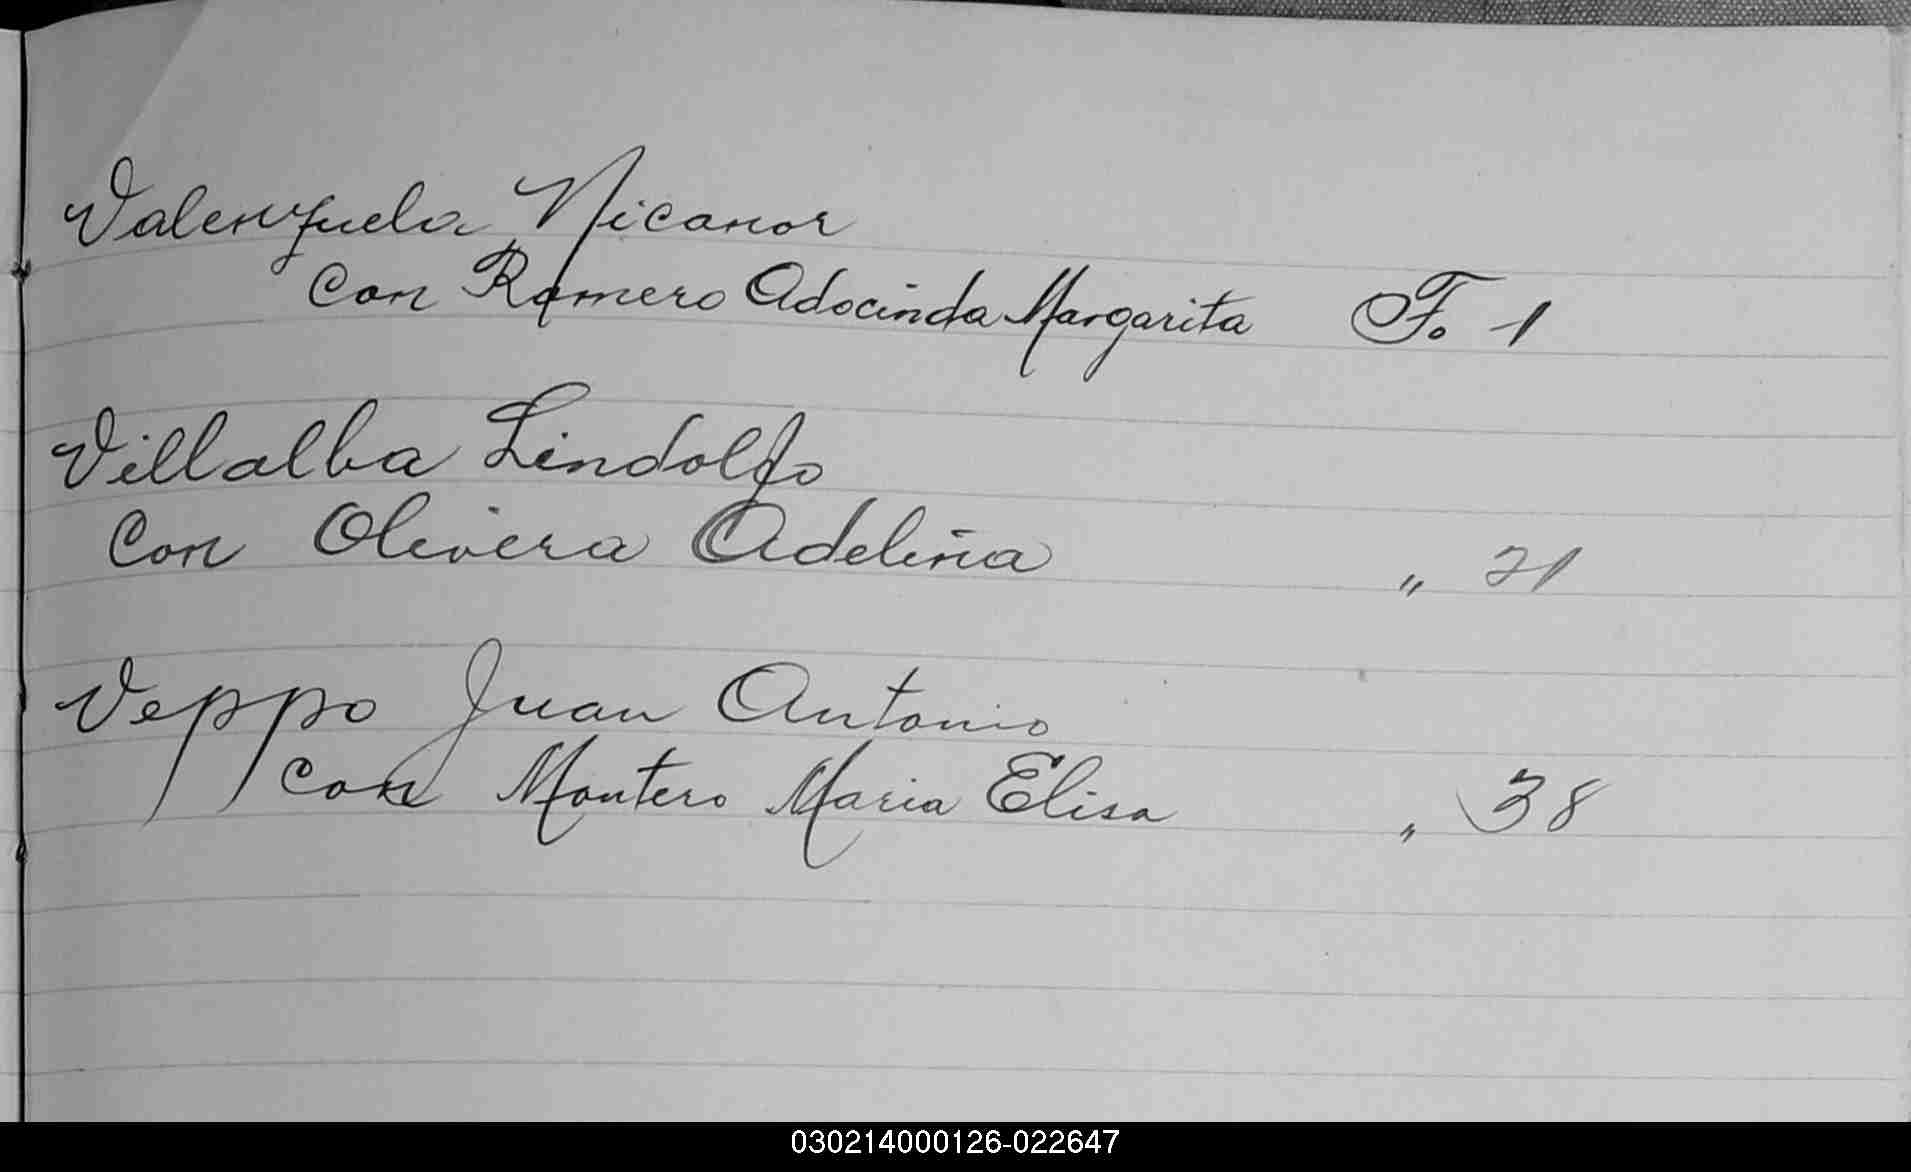 Valenzuela Nicanor
Con Romero Adocinda Margarita Fo 1
Villalba Lindolfo
Con Olivera Adelina " 21
Veppo Juan Antonio
Con Montero Maria Elisa " 38
030214000126-022647